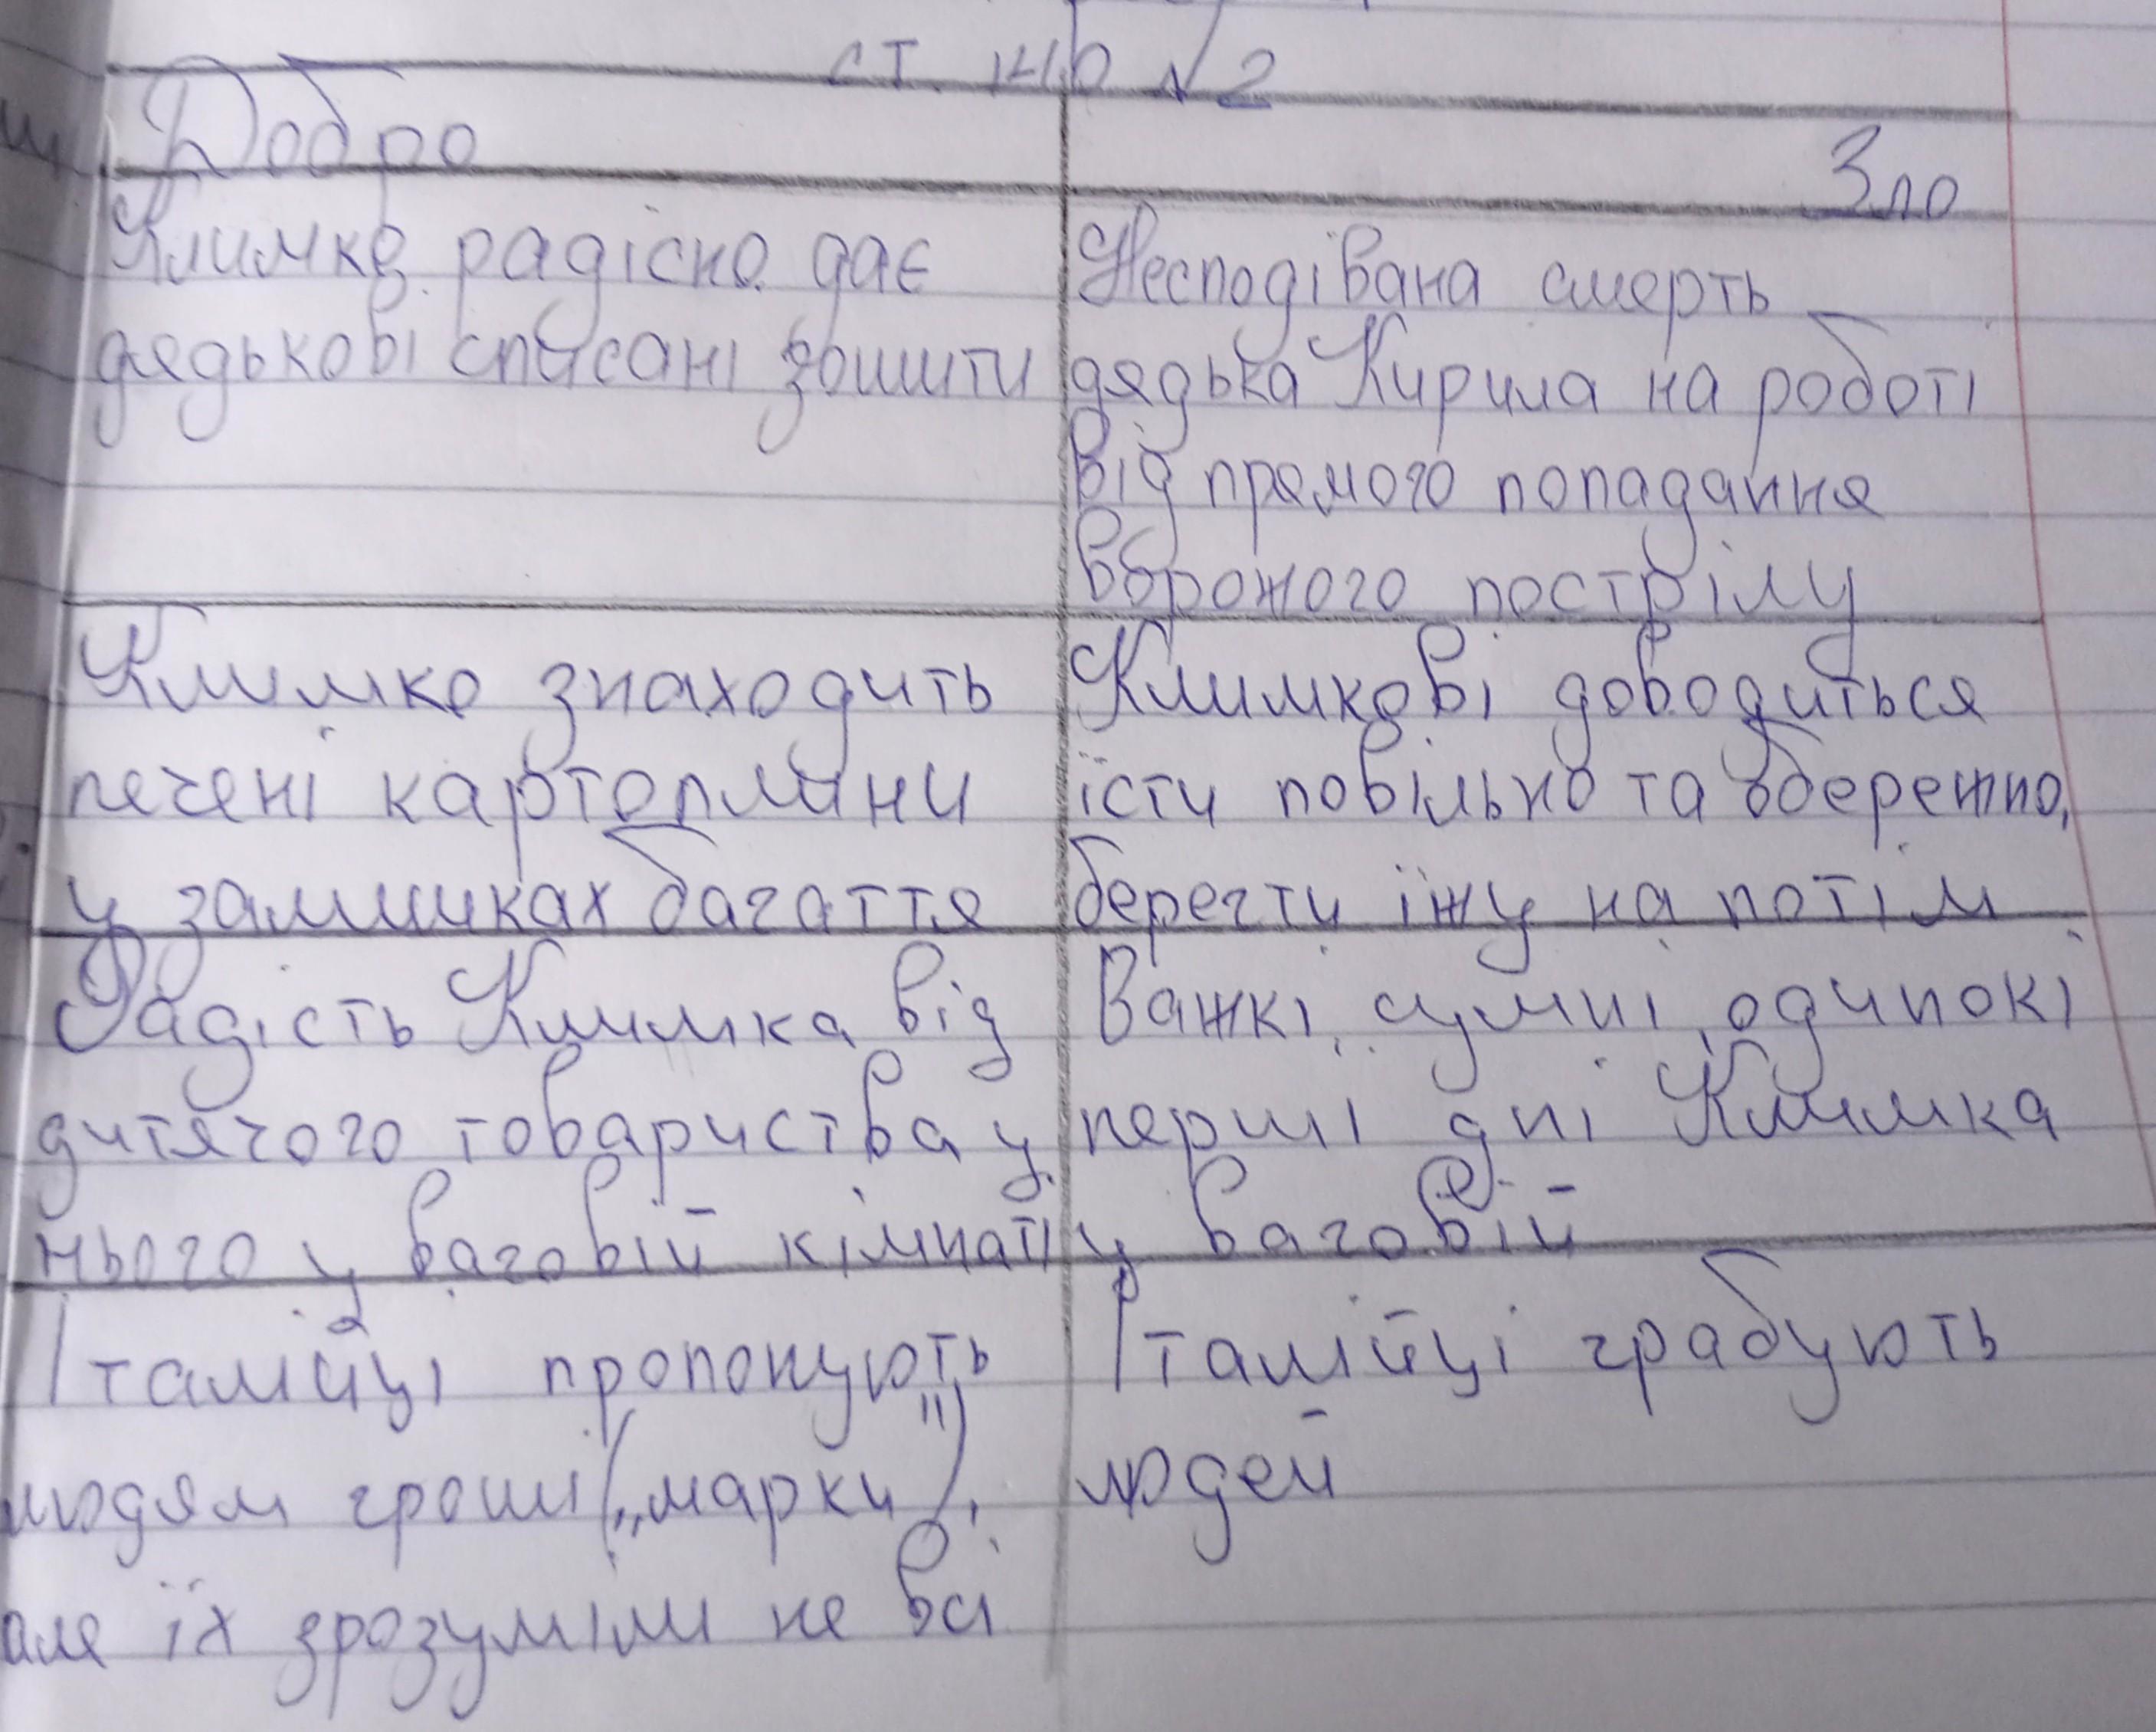 ст. 140 №2
Добро
Зло
Климко радісно дає
дядькові списані зошити
Несподівана смерть
дядька Кирила на роботі
від прямого попадання
ворожого пострілу
Климко знаходить
печені картоплини
у залишках багаття
Климкові доводиться
їсти повільно та обережно,
берегти їжу на потім
Радість Климка від
дитячого товариства у
нього у ваговій кімнаті
Важкі, сумні, одинокі
перші дні Климка
у ваговій
Італійці пропонують
людям гроші („марки"),
але їх зрозуміли не всі
Італійці грабують
людей